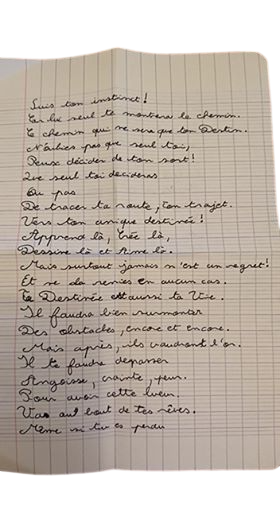 Suis ton instinct!
Car lui seul te montrera le chemin.
Ce chemin qui ne sera que ton Destin.
N'oublies pas que seul toi,
Peux décider de ton sort!
Que seul toi décideras
Ou pas
De tracer ta route, ton trajet.
Vers ton unique destinée!
Apprend là, Crée là,
Dessine là et Aime là.
Mais surtout jamais n'est un regret!
Et ne la renies en aucun cas.
Ta Destinée est aussi ta Vie.
Il faudra bien surmonter
Des obstacles, encore et encore.
Mais après, ils vaudront l'or.
Il te faudra dépasser
Angoisse, crainte, peur.
Pour avoir cette lueur.
Vas au bout de tes rêves.
Même si tu es perdu